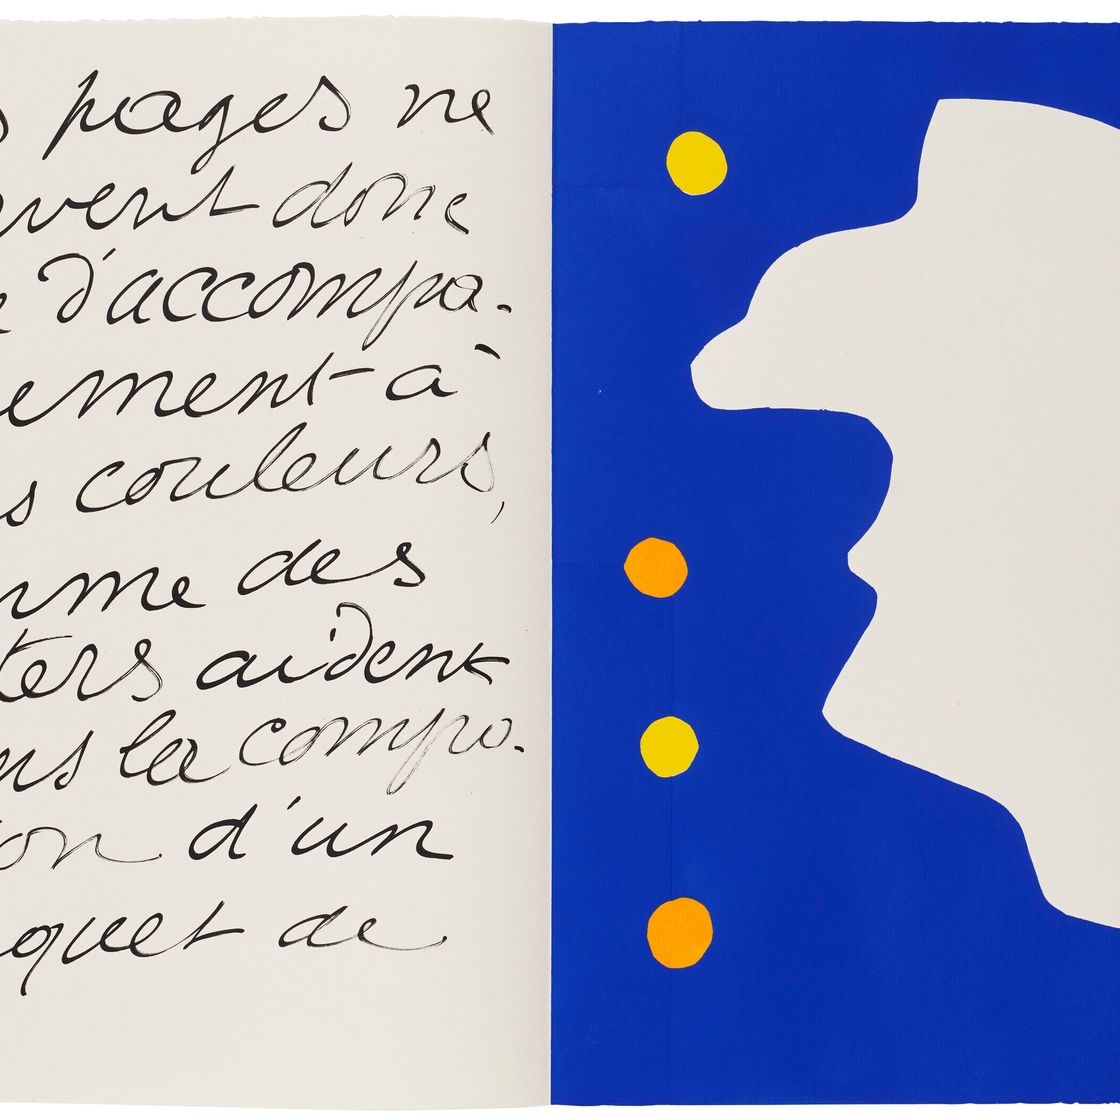 s pages ne
rvent donc
e d'accompa-
ement à
s couleurs,
mme des
ters aident
ns la compo-
ion d'un
quet de